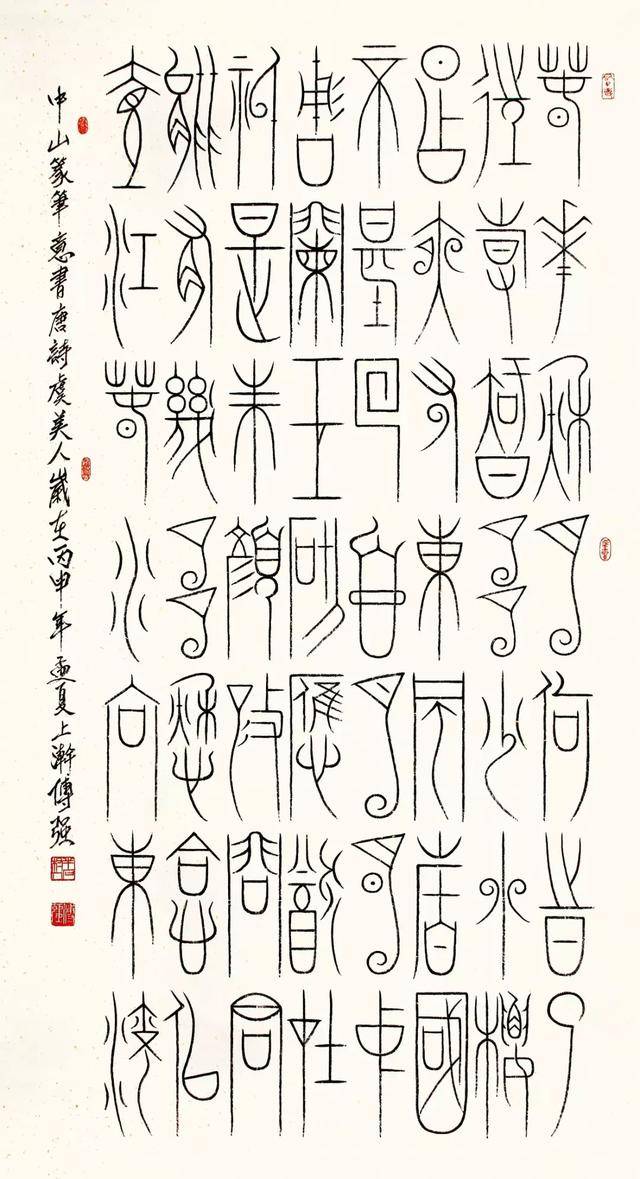 春花秋月何時了
往事知多少小樓
昨夜又東風故國
不堪回首月明中
雕闌玉砌應猶在
祇是朱顏改問君
能有幾多愁恰似
一江春水向東流
中山篆筆意書唐詩虞美人歲在丙申年孟夏上澣傅强